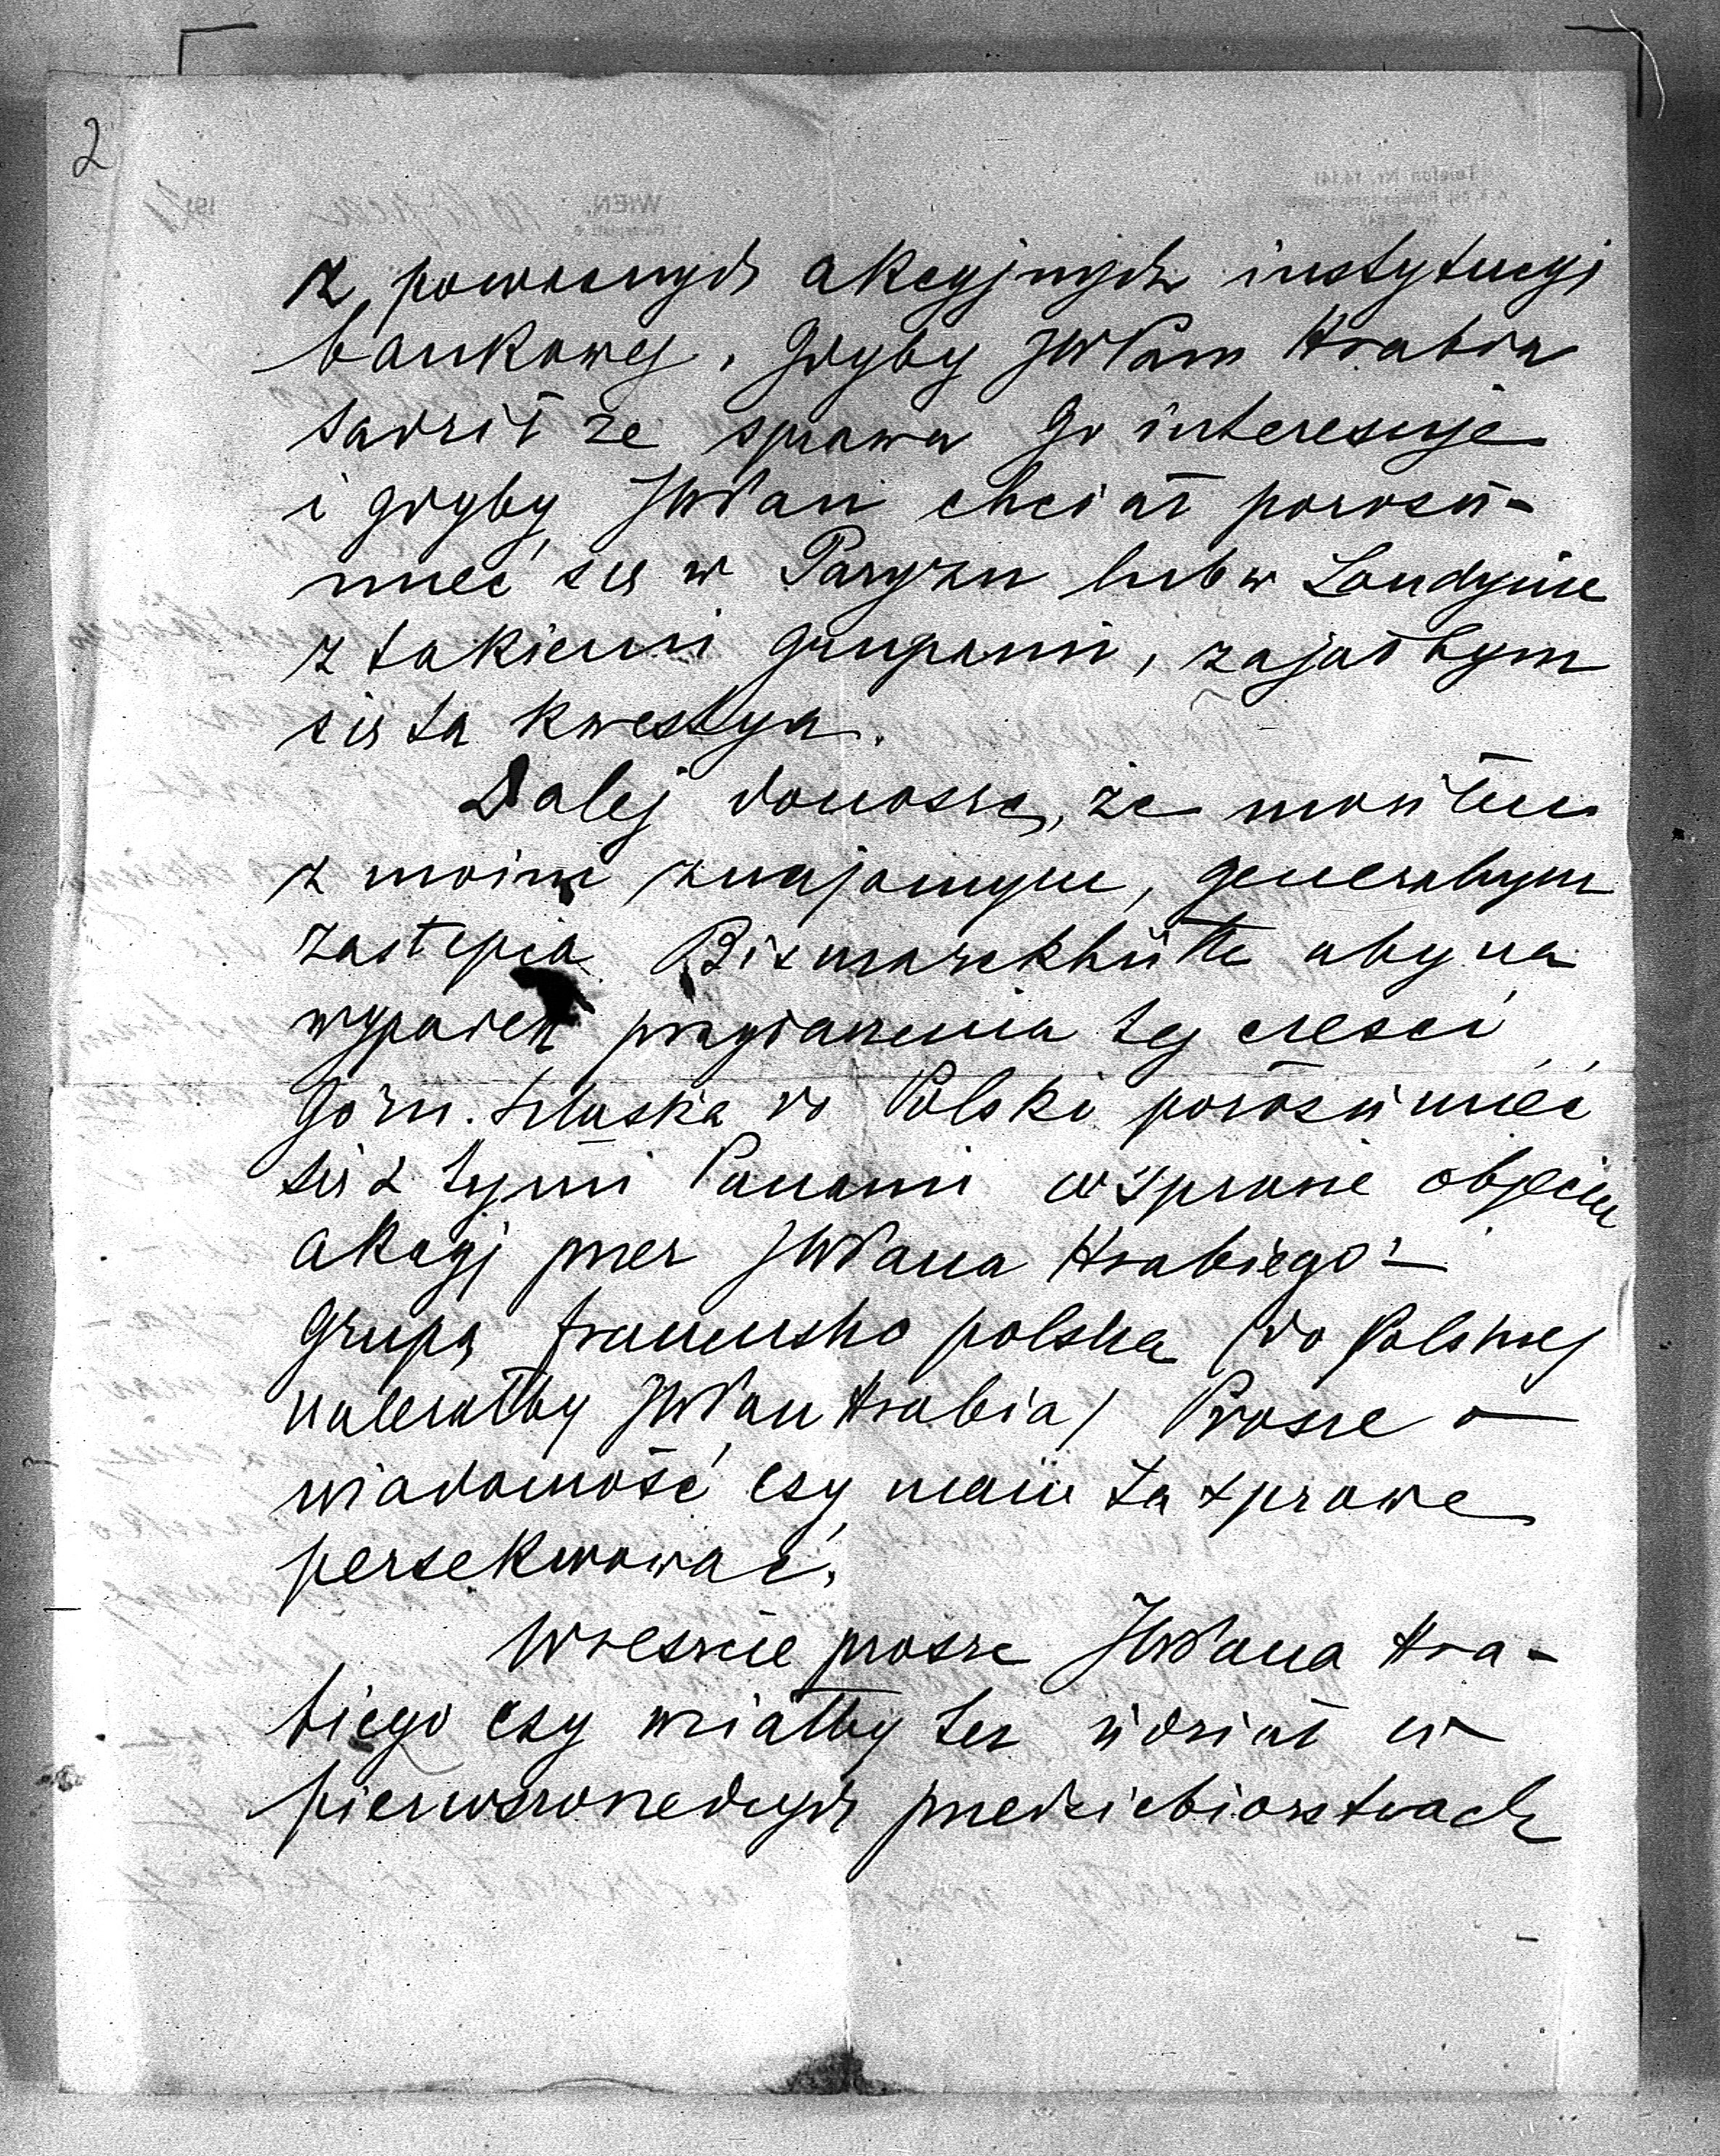 2
z poważnych akcyjnych instytucyi
bankowej. Gdyby JWPan Hrabia
sadził ze sprawa Go interesuje
i gdyby JWPan chciał porozu-
mieć się w Paryzu lub w Londynie
z takiemi grupami, zajałbym
się ta kwestya.
Dalej donoszę, że mówiłem
z moim znajomym, generalnym
zastępcą Bismarckhütte aby na
wypadek przyłaczenia tej części
Górn. Szlaska do Polski porozumieć
się z tymi Panami w sprawie objęcia
akcyj przez JWPana Hrabiego i
Grupę francusko polska (do Polskiej
należałby JWPan Hrabia) Prosze o
wiadomość czy mam ta sprawe
persekwować.
Wreszcie prosze JWPana Hra-
biego czy wziałby tez udział w
pierwszorzednych przedsiebiorstwach
WIEN,
Telefon Nr. 14.141